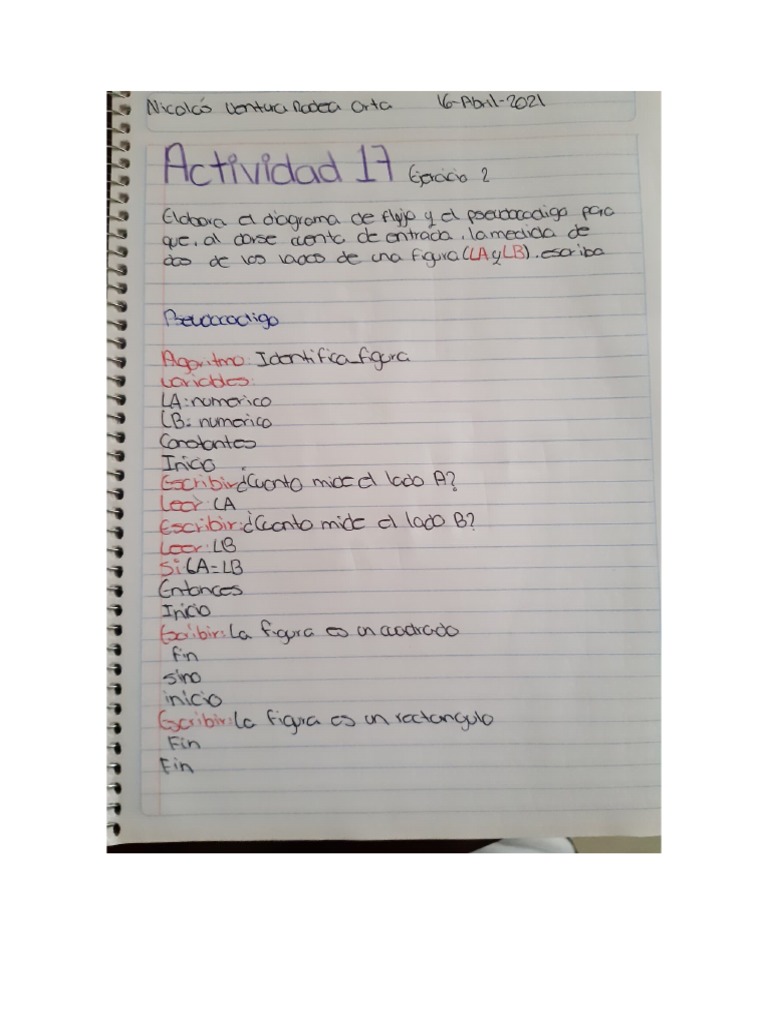 Nicolás Ventura Dadea Orta 16-Abril-2021
Actividad 17 Ejercicio 2
Elabora el diagrama de flujo y el pseudocodigo para
que, al darse cuenta de entrada, la medida de
dos de los lados de una figura (LA y LB). escriba
Pseudocodigo
Algoritmo: Identifica_figura
Variables:
LA: numerico
LB: numerico
Constantes
Inicio
Escribir: ¿Cuanto mide el lado A?
Leer: LA
Escribir: ¿Cuanto mide el lado B?
Leer: LB
Si: LA=LB
Entonces
Inicio
Escribir: La figura es un cuadrado
fin
sino
inicio
Escribir: La figura es un rectangulo
Fin
Fin